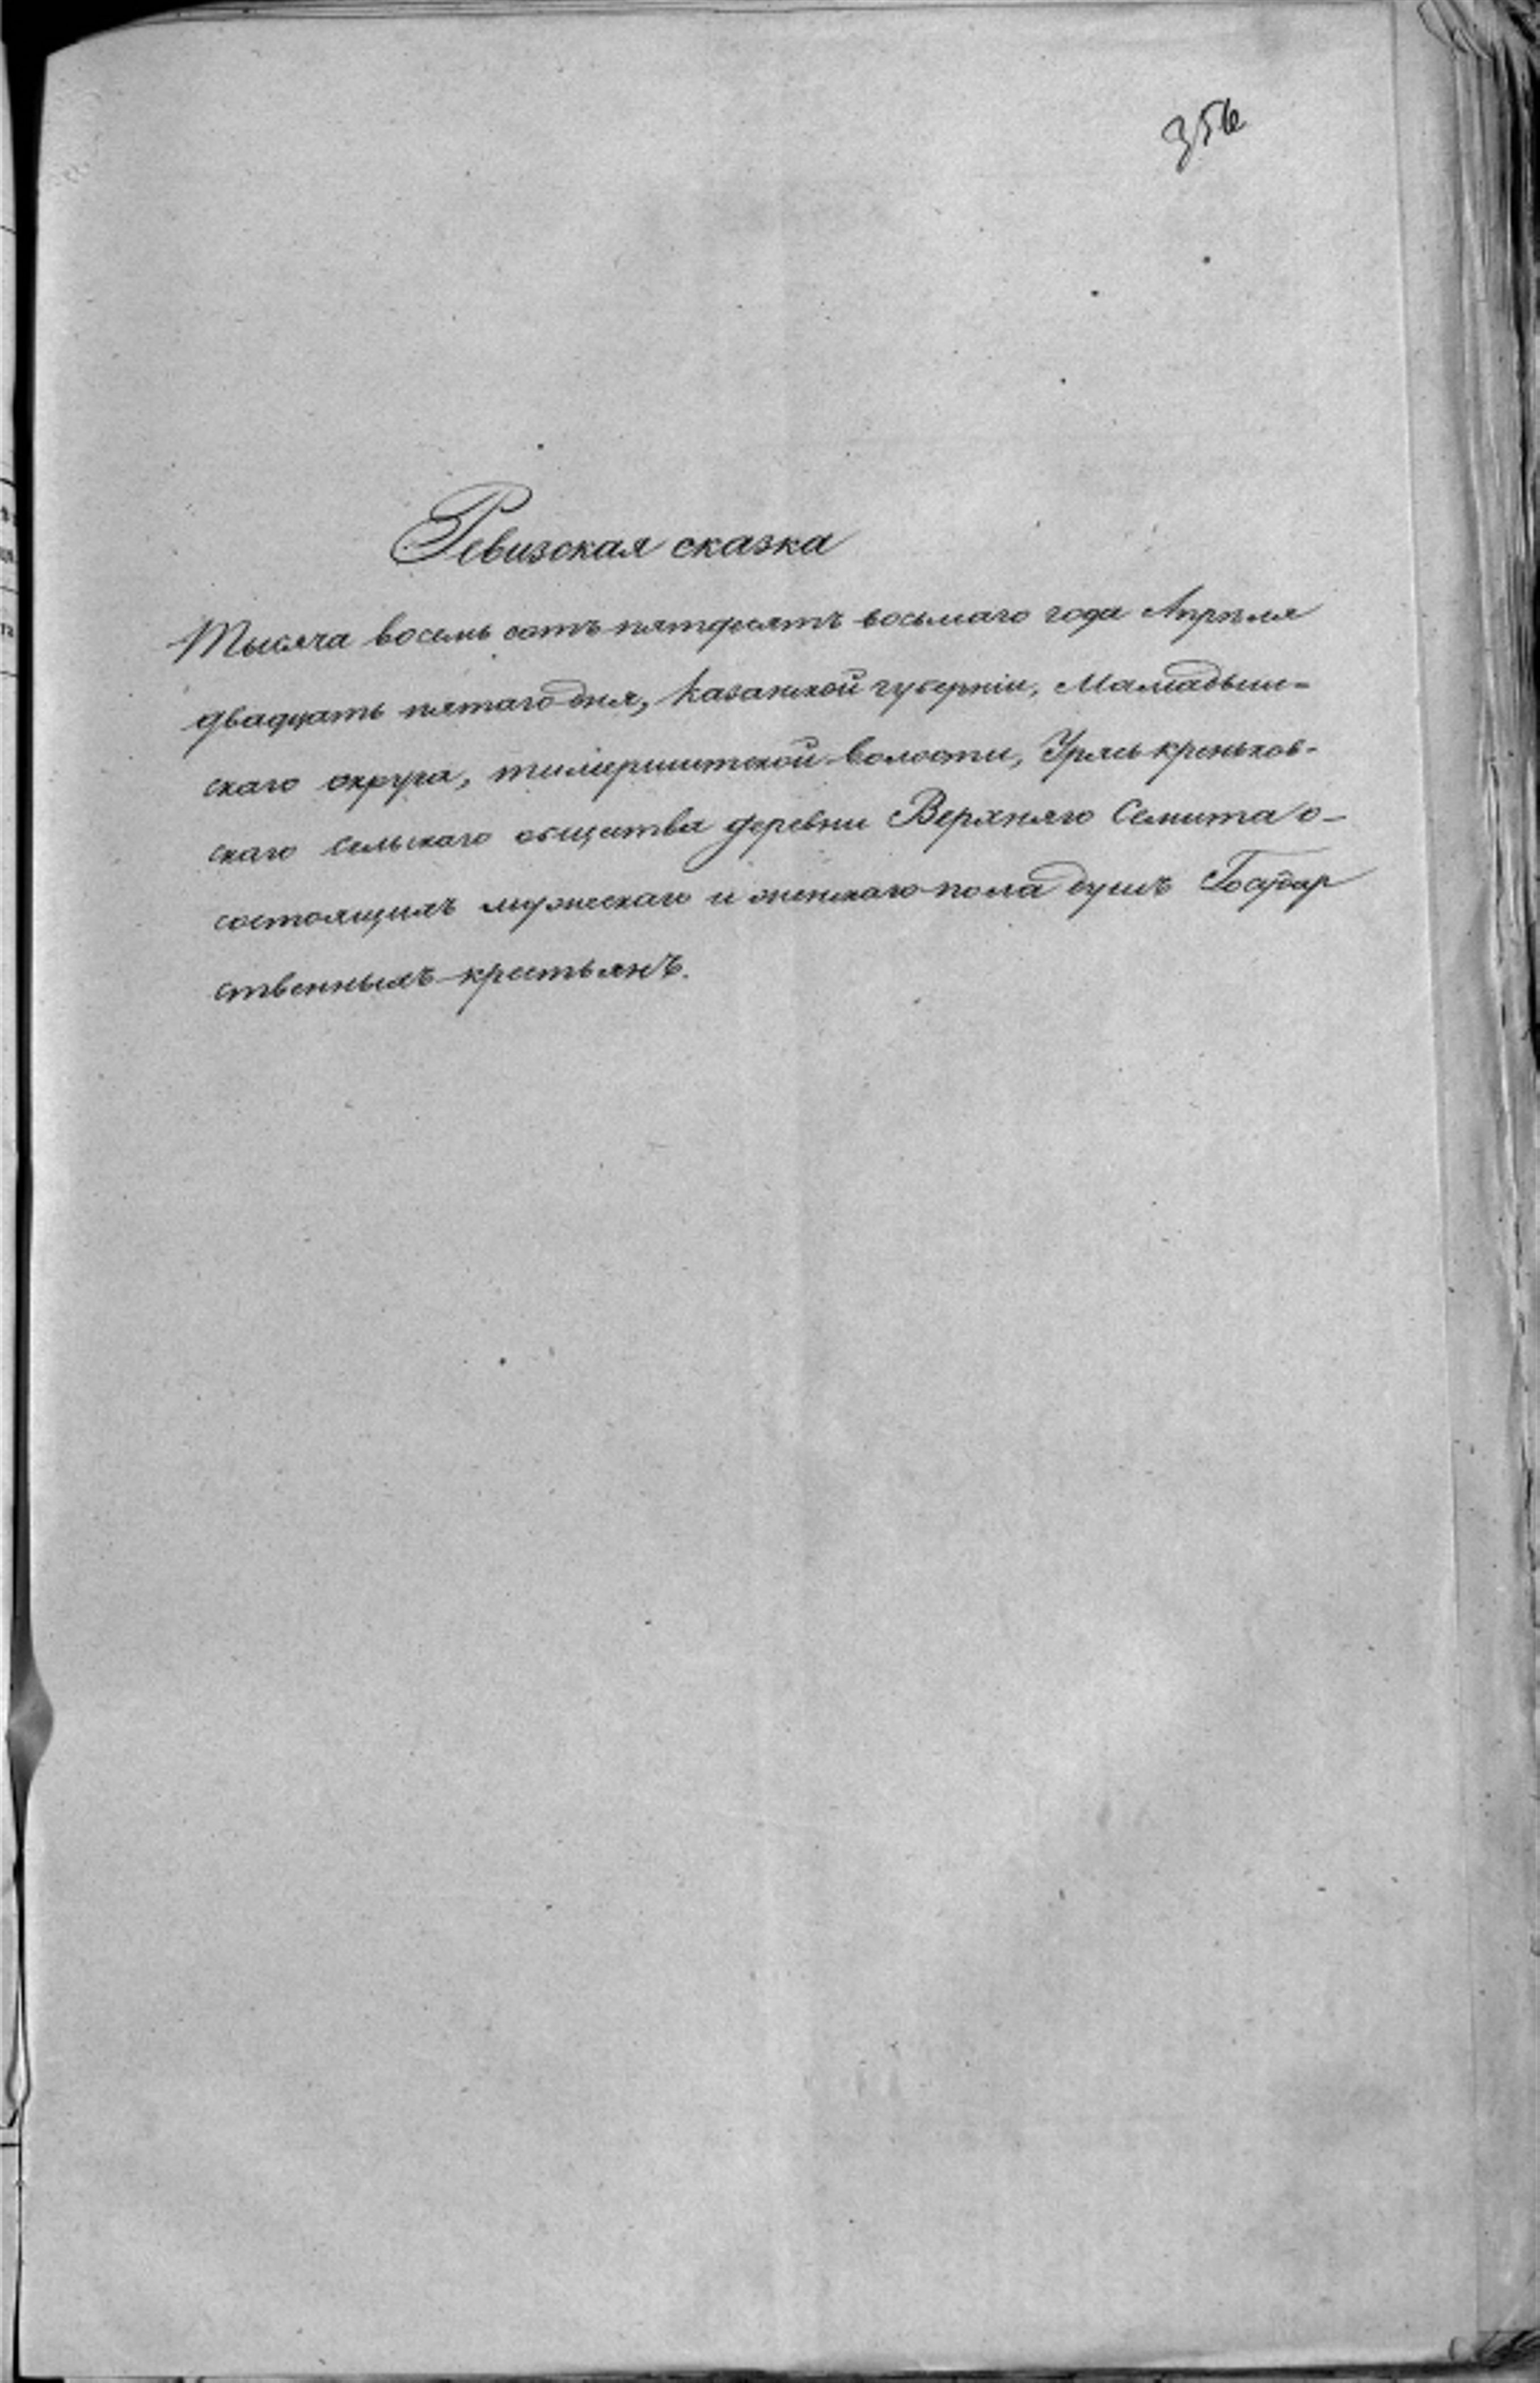 356
Ревизская сказка
Тысяча восемь сотъ пятдесятъ восьмаго года Апрѣля
двадцать пятаго дня, Казанской губерніи, Мамадыш-
скаго округа, тимершитской волости, Урясь креньков-
скаго сельскаго общества деревни Верхняго Семита о-
состоящихъ мужескаго и женскаго пола душъ Государ
ственныхъ крестьянъ.